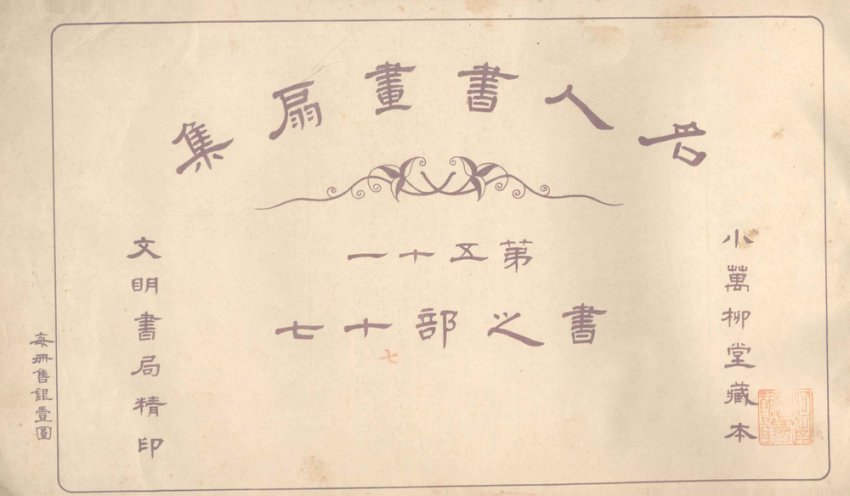 名人書畫扇集
第五十一
書之部十七
七
小萬柳堂藏本
文明書局精印
每冊售銀壹圓